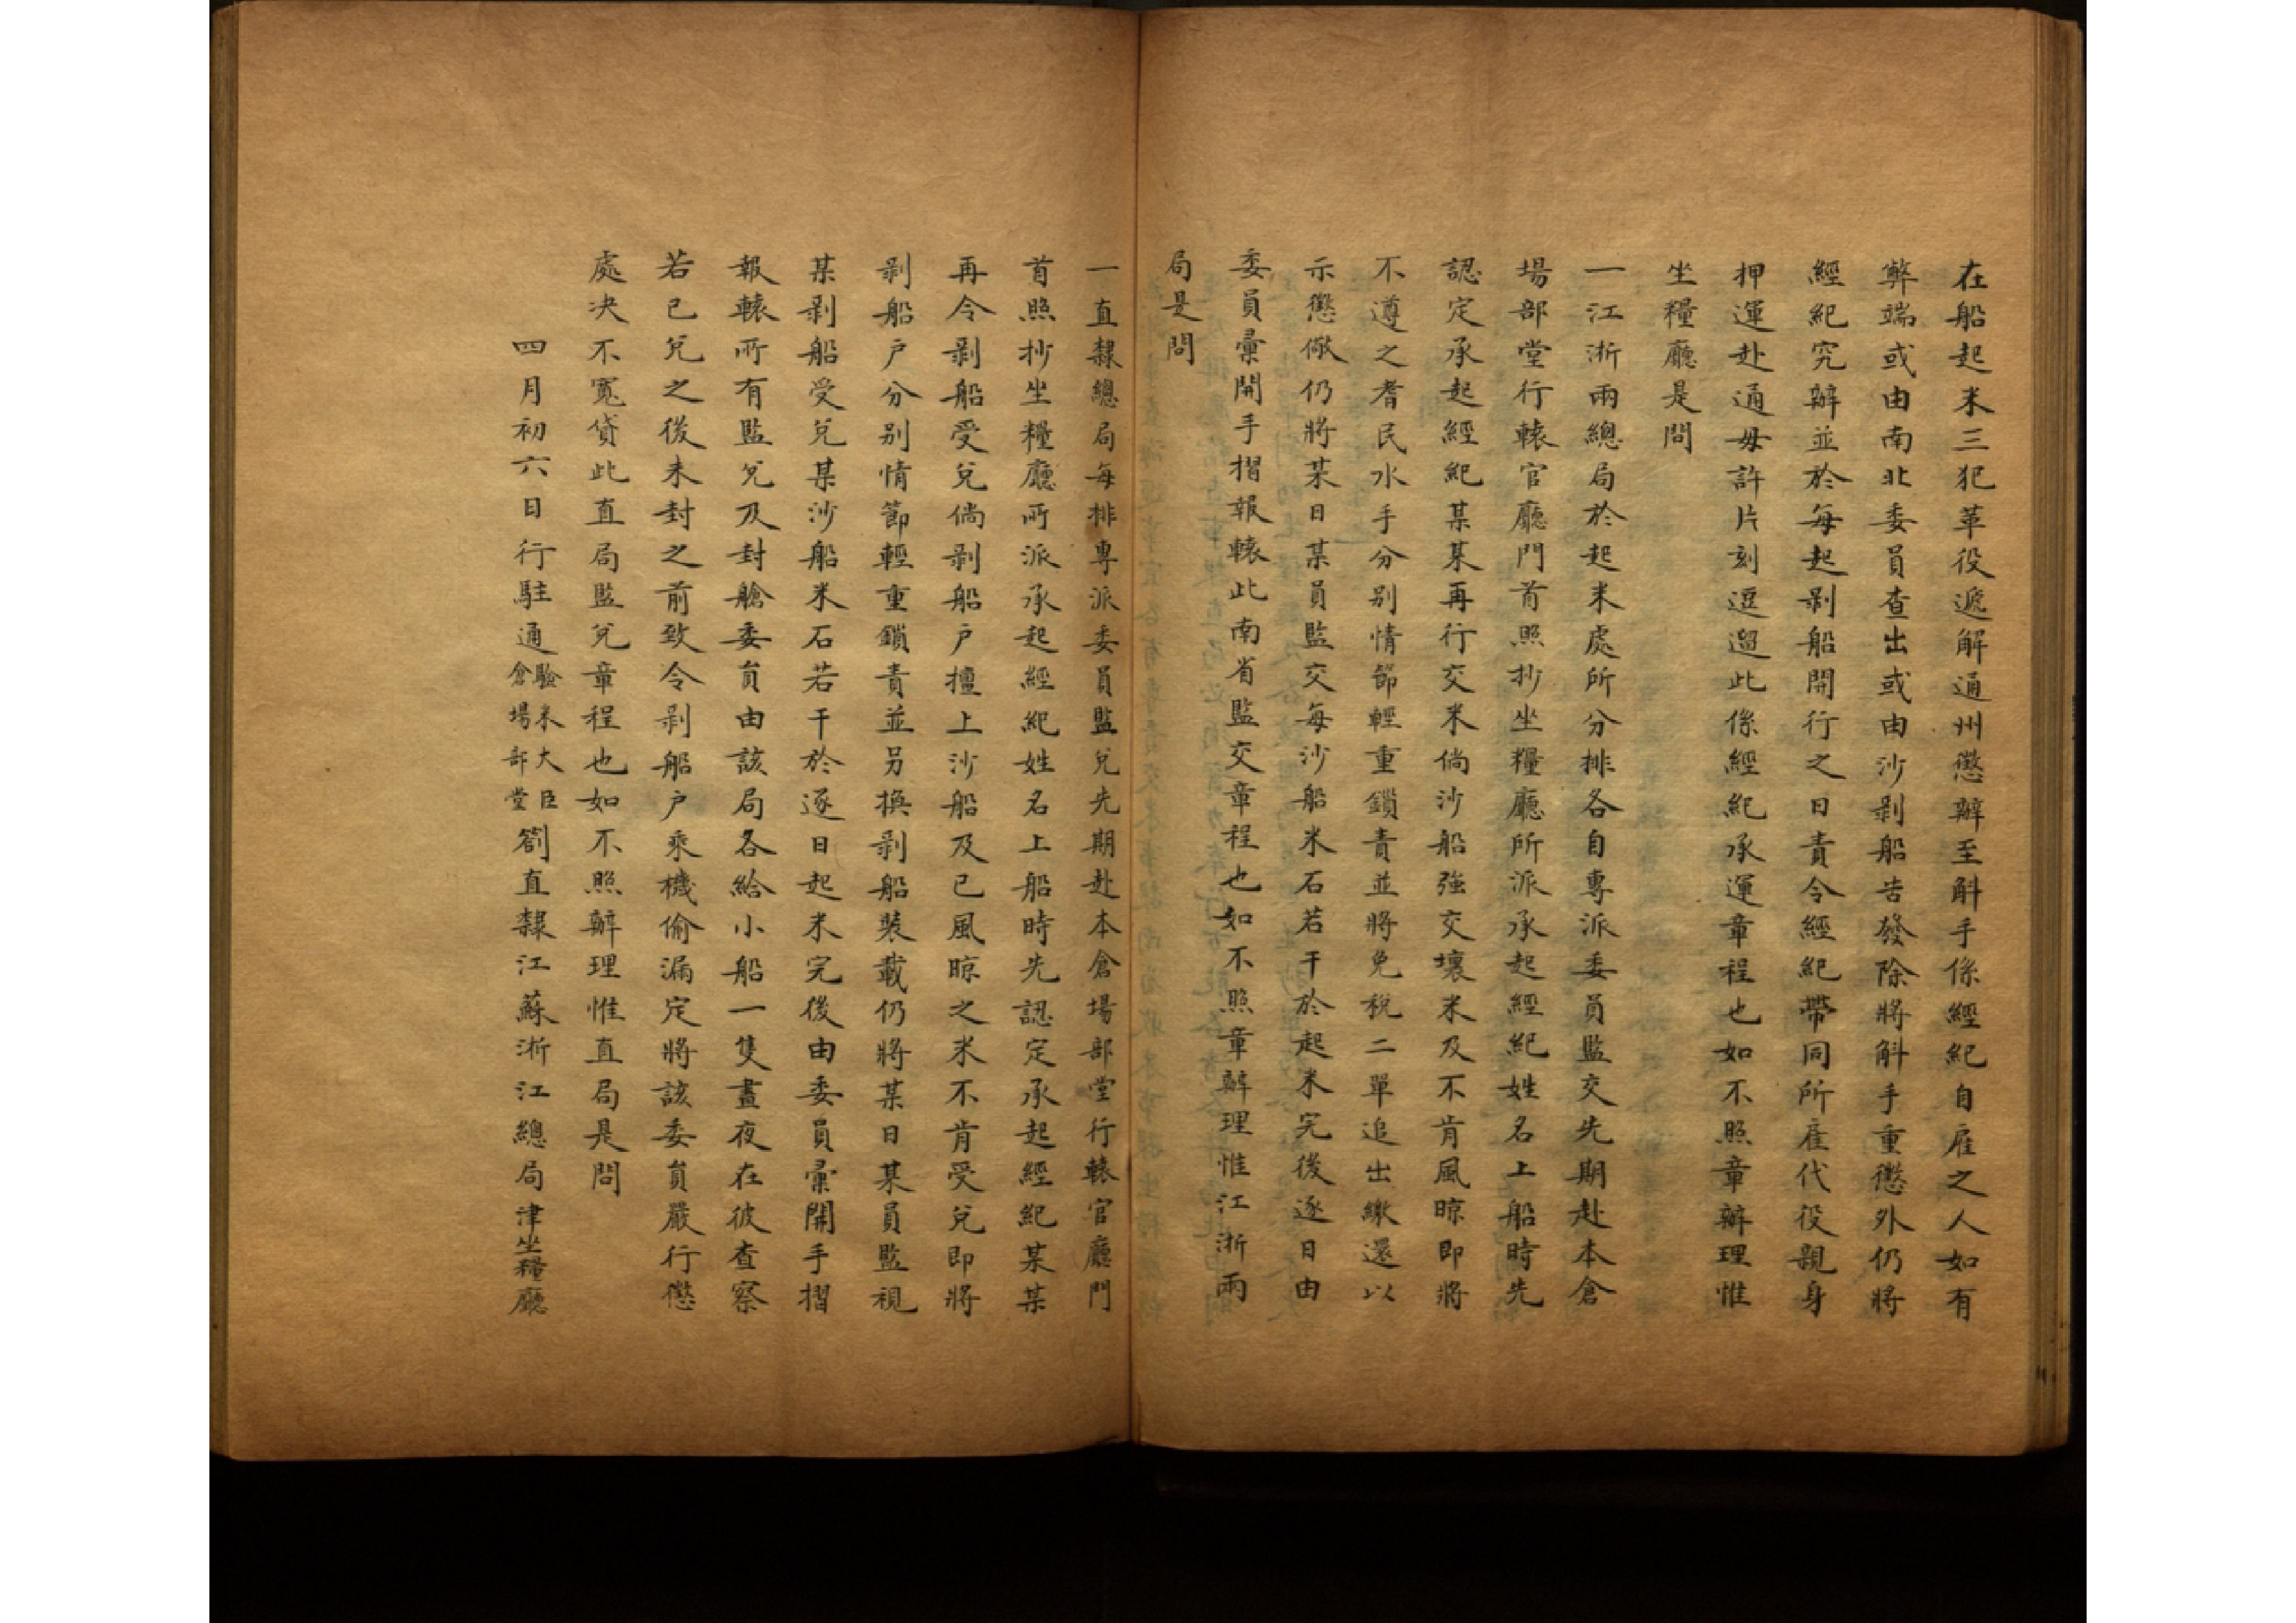 在船起米三犯革役遞解通州懲辦至斛手係經紀自雇之人如有
弊端或由南北委員查出或由沙剝船告發除將斛手重懲外仍將
經紀究辦並於每起剝船開行之日責令經紀帶同所雇代役親身
押運赴通毋許片刻逗遛此係經紀承運章程也如不照章辦理惟
坐糧廳是問
一江浙兩總局於起米處所分排各自專派委員監交先期赴本倉
場部堂行轅官廳門首照抄坐糧廳所派承起經紀姓名上船時先
認定承起經紀某某再行交米倘沙船強交壞米及不肯風晾即將
不遵之耆民水手分別情節輕重鎖責並將免稅二單追出繳還以
示懲儆仍將某日某員監交每沙船米石若干於起米完後逐日由
委員彙開手摺報轅此南省監交章程也如不照章辦理惟江浙兩
局是問
一直隸總局每排專派委員監兌先期赴本倉場部堂行轅官廳門
首照抄坐糧廳所派承起經紀姓名上船時先認定承起經紀某某
再令剝船受兌倘剝船戶擅上沙船及已風晾之米不肯受兌即將
剝船戶分別情節輕重鎖責並另換剝船裝載仍將某日某員監視
某剝船受兌某沙船米石若干於逐日起米完後由委員彙開手摺
報轅所有監兌及封艙委員由該局各給小船一隻晝夜在彼查察
若已兌之後未封之前致令剝船戶乘機偷漏定將該委員嚴行懲
處決不寬貸此直局監兌章程也如不照辦理惟直局是問
四月初六日行駐通驗米大臣倉場部堂劄直隸江蘇浙江總局津坐糧廳